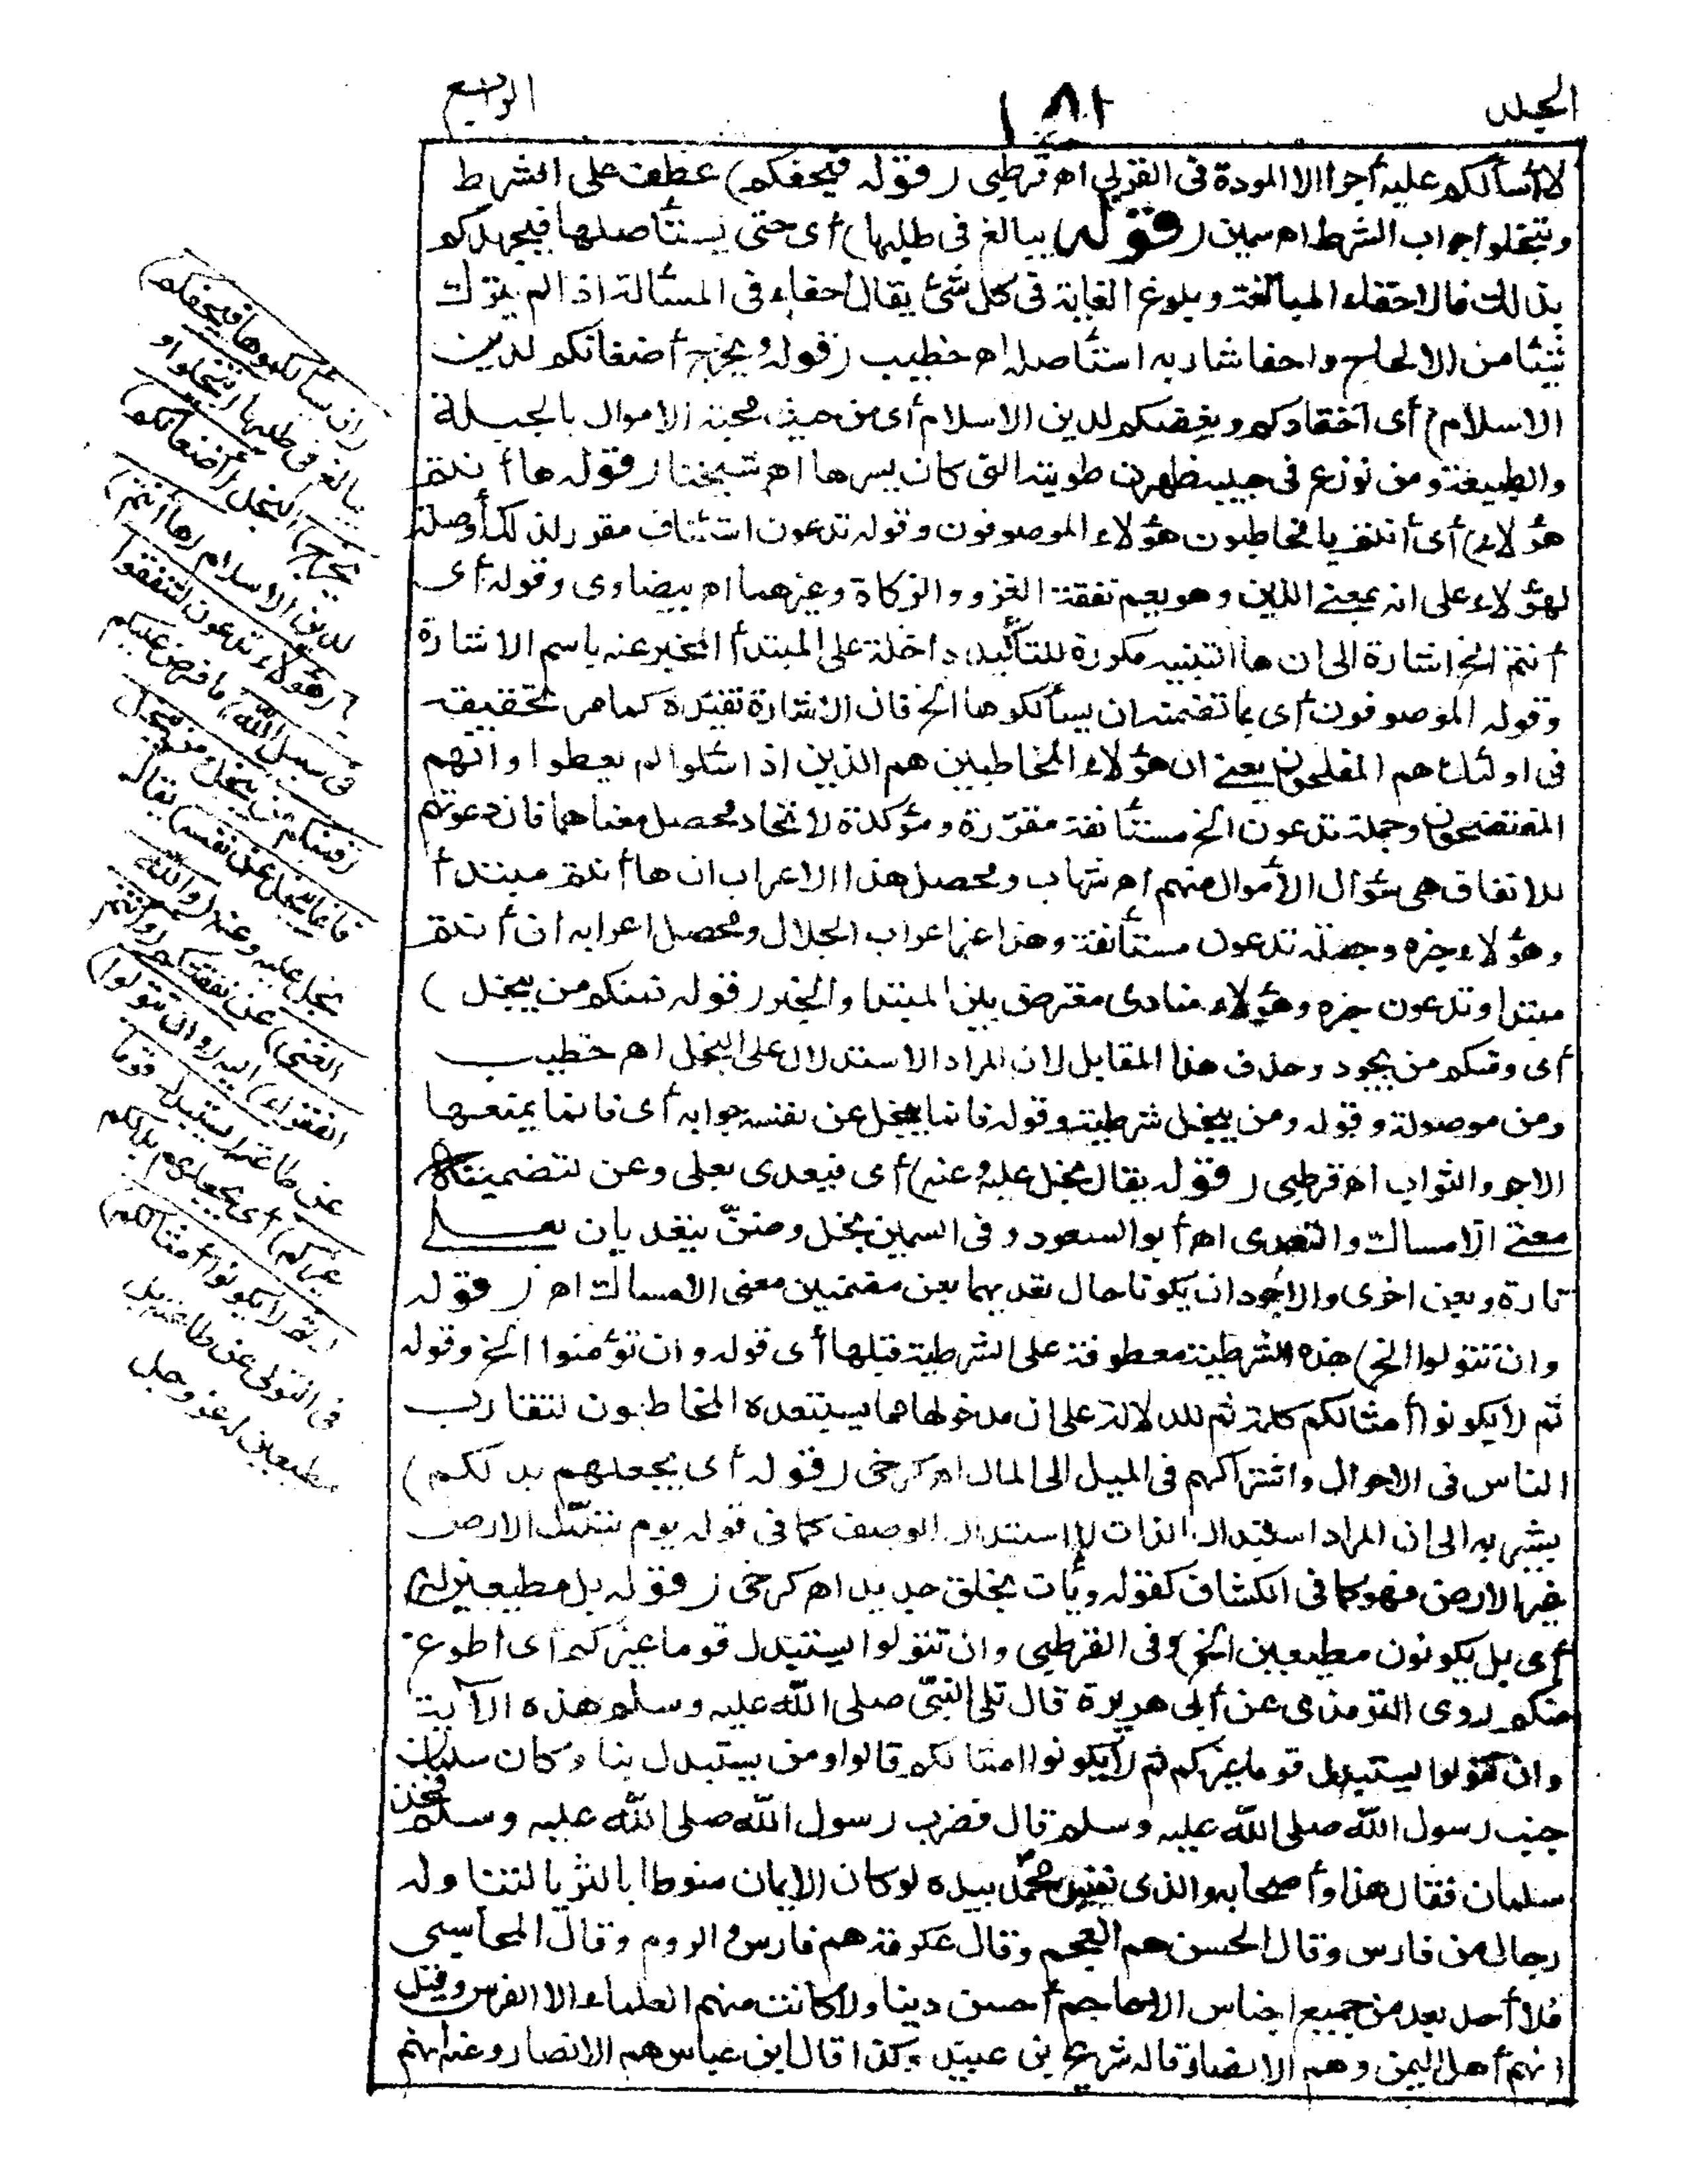 الجلد
١٨١
الرابع
لا أسألكم عليه أجرا الا المودة فى القربى اه قرطبى (قوله فيحفكم) عطف على الشرط
وتبخلوا جواب الشرط اه سمين (قوله) يبالغ فى طلبها) أى حتى يستأصلها فيجهدكم
بذلك فالاحفاء المبالغة وبلوغ الغاية فى كل شئ يقال أحفاه فى المسألة اذا لم يترك
شيئا من الالحاح واحفا شاربه استأصله اه خطيب (قوله ويخرج أضغانكم لدين
الاسلام) أى احقادكم وبغضكم لدين الاسلام أى من حيث محبة الاموال بالجبلة
والطبيعة ومن نوزع فى حبيبه ظهرت طويته التى كان يسرها اه شيخنا (قوله ها أنتم
هؤلاء) أى أنتم يا مخاطبون هؤلاء الموصوفون وقوله تدعون استئناف مقرر لذلك أو صلة
لهؤلاء على انه بمعنى الذين وهو يعم نفقة الغزو والزكاة وغيرهما اه بيضاوى وقوله أى
أنتم الخ اشارة الى ان ها التنبيه مكررة للتأكيد داخلة على المبتدأ المخبر عنه باسم الاشارة
وقوله الموصوفون أى بما تضمنته ان يسألكموها الخ فان الاشارة تفيده كما مر تحقيقه
فى اولئك هم المفلحون يعنى ان هؤلاء المخاطبين هم الذين اذا سئلوا لم يعطوا وانهم
المفتضحون وجملة تدعون الخ مستأنفة مقررة ومؤكدة لاتحاد محصل معناهما فان دعوتهم
للانفاق هى سؤال الأموال منهم اه شهاب ومحصل هذا الاعراب ان ها أنتم مبتدأ
وهؤلاء خبره وجملة تدعون مستأنفة وهذا غير اعراب الجلال ومحصل اعرابه ان أنتم
مبتدا وتدعون خبره وهؤلاء منادى معترض بين المبتدا والخبر (قوله فمنكم من يبخل)
أى ومنكم من يجود وحذف هذا المقابل لان المراد الاستدلال على البخل اه خطيب
ومن موصولة وقوله ومن يبخل شرطية وقوله فانما يبخل عن نفسه جوابه أى فانما يمنعها
الاجر والثواب اه قرطبى (قوله يقال بخل عليه وعنه) أى فيعدى بعلى وعن لتضمينه
معنى الامساك والتعدى اه أبو السعود وفى السمين بخل وضنّ يتعديان بعلى
تارة وبعن اخرى والاجود ان يكونا حال تعديهما بعن مضمنين معنى الامساك اه (قوله
وان تتولوا الخ) هذه الشرطية معطوفة على الشرطية قبلها أى قوله وان تؤمنوا الخ وقوله
ثم لا يكونوا أمثالكم كلمة ثم للدلالة على ان مدخولها مما يستبعده المخاطبون لتقارب
الناس فى الاحوال واشتراكهم فى الميل الى المال اه كرخى (قوله أى يجعلهم بدلكم)
يشير به الى ان المراد استبدال الذات لا استبدال الوصف كما فى قوله يوم تبدّل الارض
غير الارض فهو كما فى الكشاف كقوله ويأت بخلق جديد اه كرخى (قوله بل مطيعين له)
أى بل يكونون مطيعين الخ) وفى القرطبى وان تتولوا يستبدل قوما غيركم أى اطوع
منكم روى الترمذى عن أبى هريرة قال تلى النبىّ صلى الله عليه وسلم هذه الآية
وان تتولوا يستبدل قوما غيركم ثم لا يكونوا امثالكم قالوا ومن يستبدل بنا وكان سلمان
جنب رسول الله صلى الله عليه وسلم قال فضرب رسول الله صلى الله عليه وسلم فخذ
سلمان فقال هذا وأصحابه والذى نفس محمد بيده لو كان الايمان منوطا بالثريا لتناوله
رجال من فارس وقال الحسن هم العجم وقال عكرمة هم فارس والروم وقال المحاسبى
فلا أحد بعد من جميع اجناس الاعاجم أحسن دينا ولا كانت منهم العلماء الا الفرس وقيل
انهم أهل اليمن وهم الانصار قاله شريح بن عبيد وكذا قال ابن عباس هم الانصار وعنه انهم
(ان يسألكموها فيحفكم)
يبالغ فى طلبها (تبخلوا و
يخرج) البخل (أضغانكم)
لدين الاسلام (ها أنتم)
يا (هؤلاء تدعون لتنفقوا
فى سبيل الله) ما فرض عليكم
(فمنكم من يبخل ومن يبخل
فانما يبخل عن نفسه) يقال
بخل عليه وعنه (والله
الغنى) عن نفقتكم (وأنتم
الفقراء) اليه (وان تتولوا)
عن طاعته (يستبدل قوما
غيركم) أى يجعلهم بدلكم
(ثم لا يكونوا أمثالكم)
فى التولى عن طاعته بل
مطيعين له عز وجل